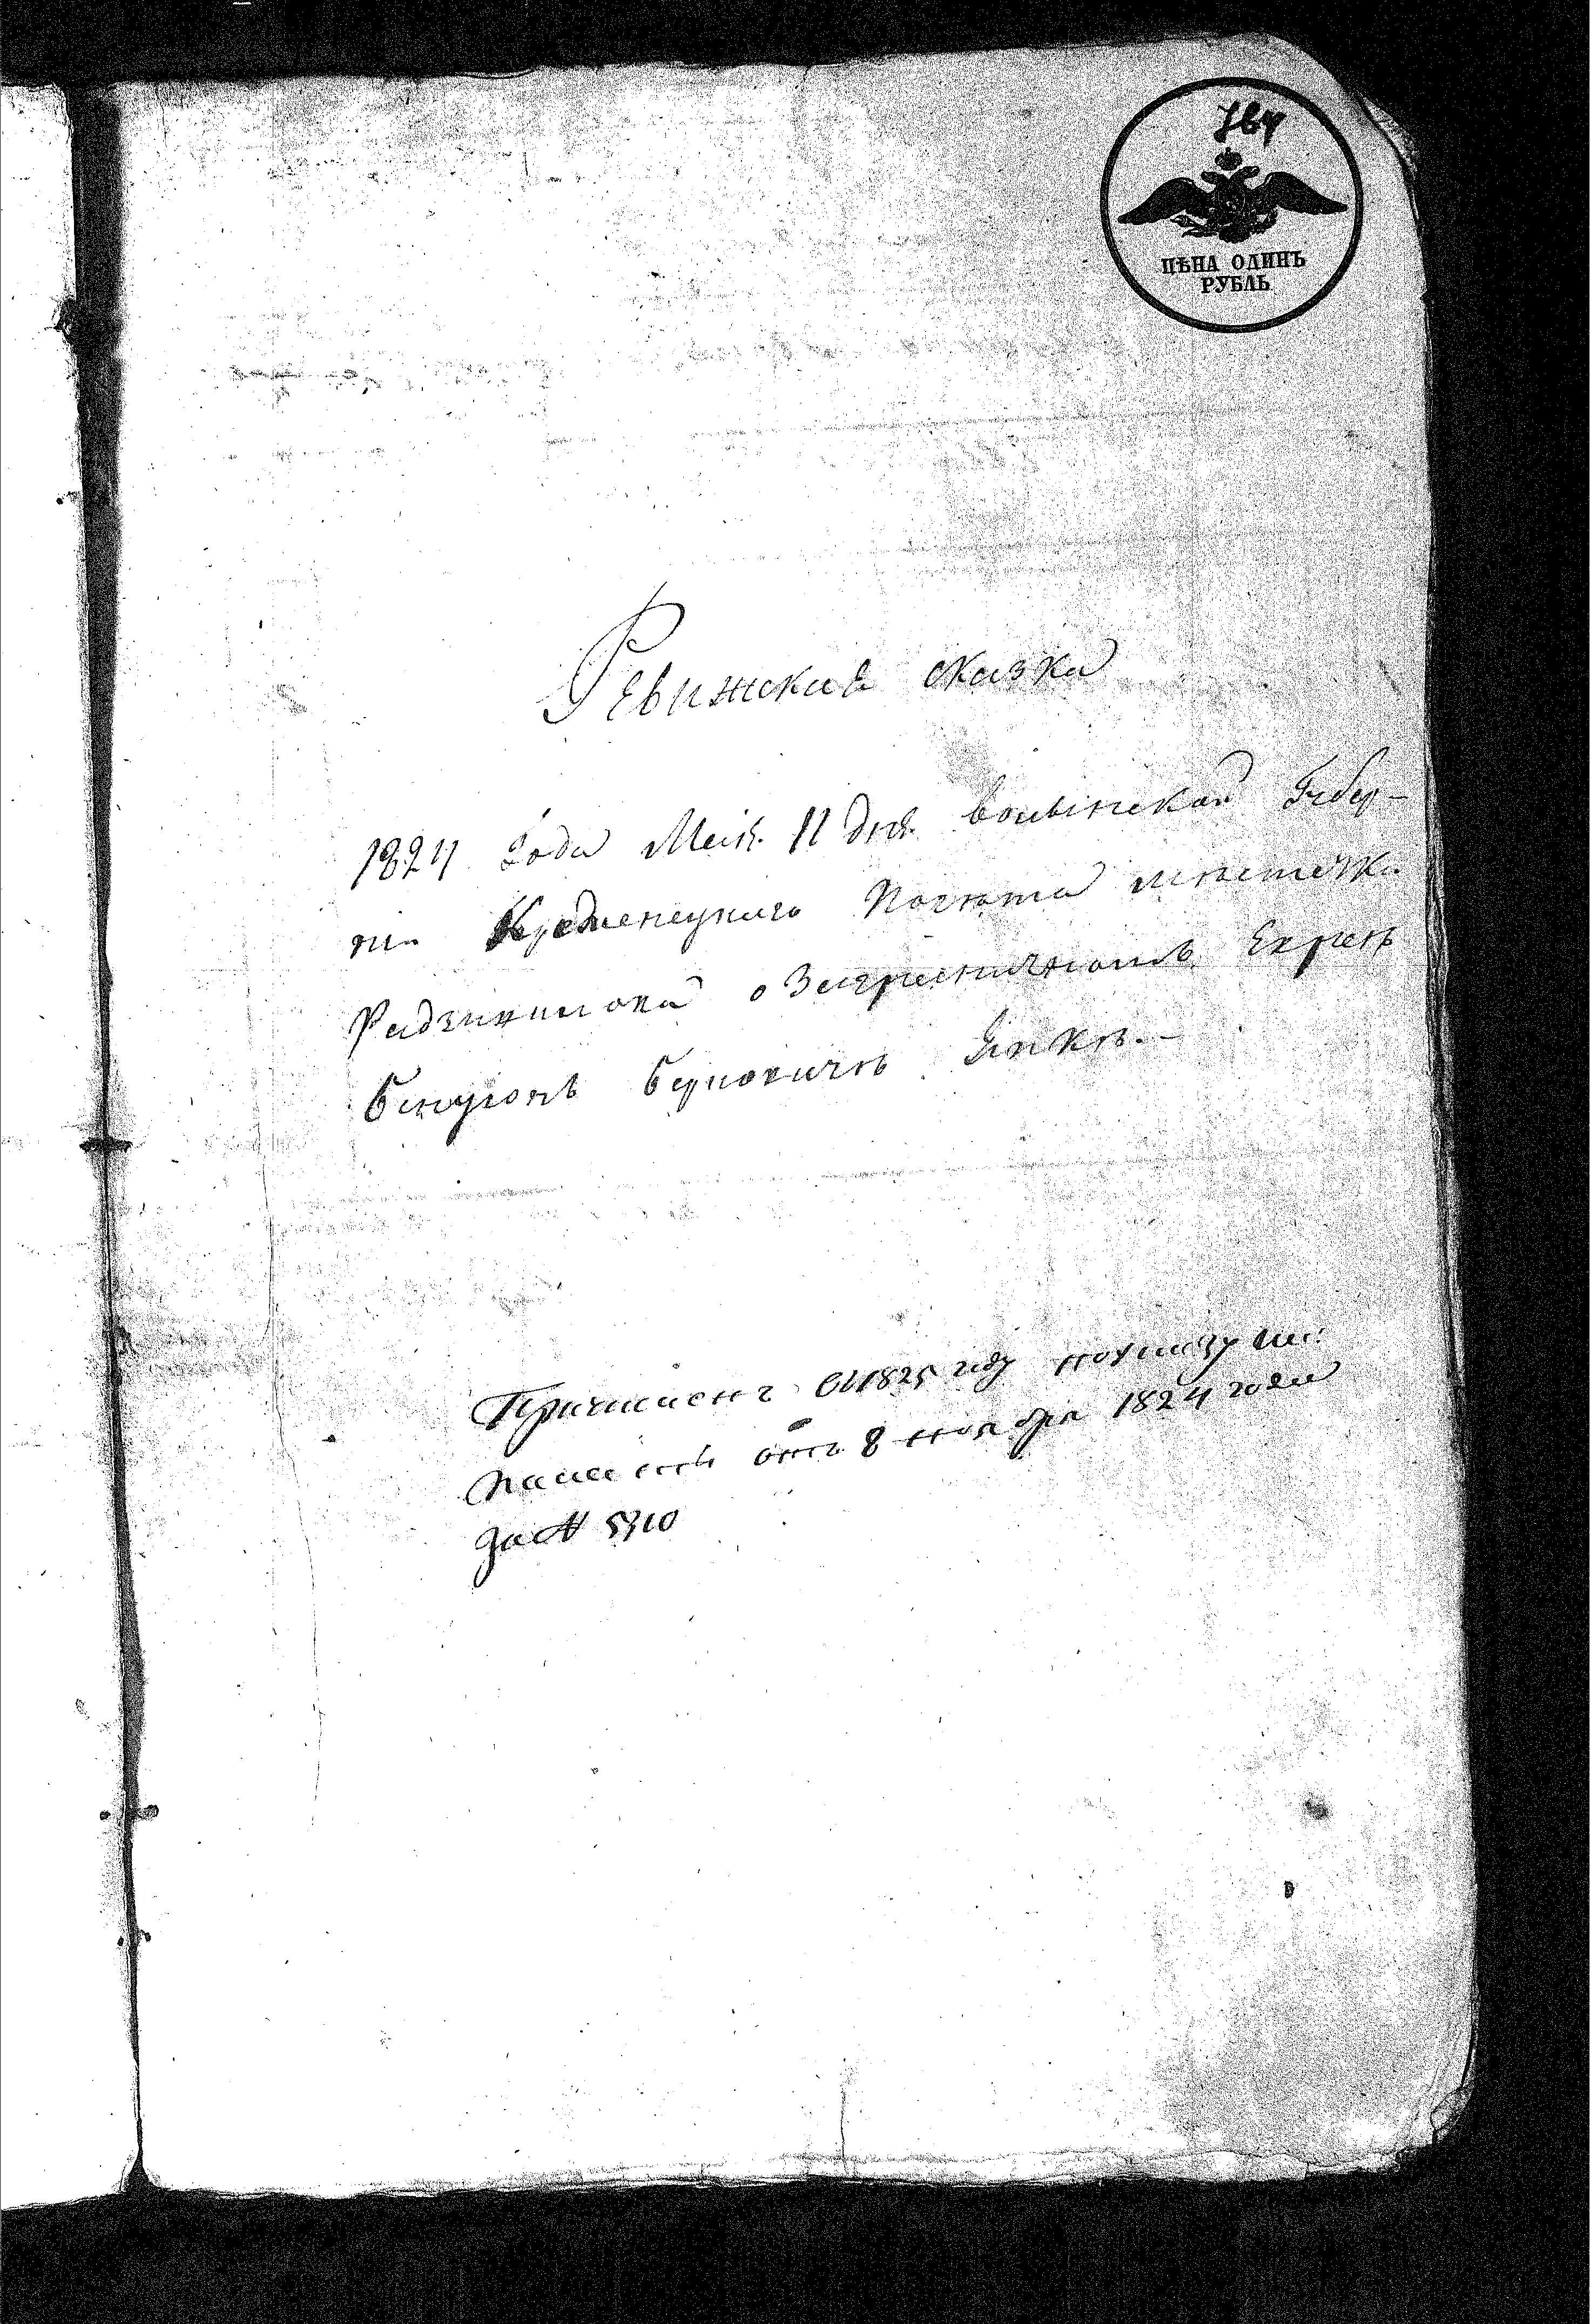 ЦѢНА ОДИНЪ
РУБЛЬ
Ревижская сказка
1824 Года Маія 11 дня Волынской Губер-
ніи Кременецкаго Повѣта мѣстечка
Радзивилова о Заграничномъ Евреѣ
Бенціонѣ Берковичѣ
Причислены съ 1825 году по указу
Палаты отъ 8 ноября 1824 года
за № 5310